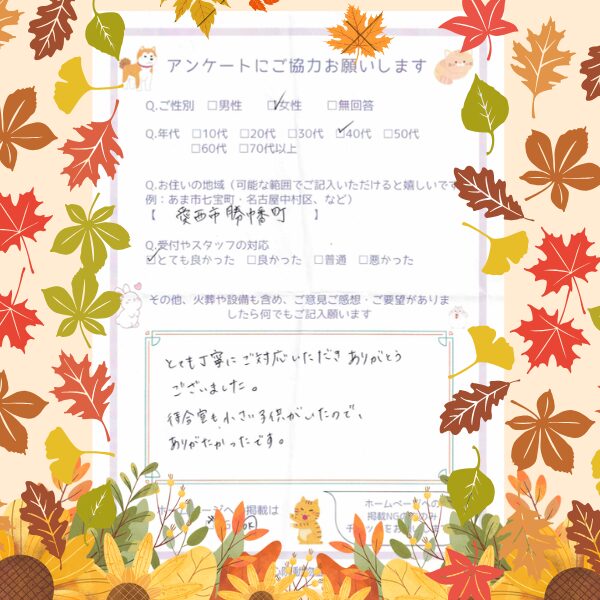 アンケートにご協力お願いします
Q.ご性別 □男性 ☑女性 □無回答
Q.年代 □10代 □20代 □30代 ☑40代 □50代
□60代 □70代以上
Q.お住いの地域（可能な範囲でご記入いただけると嬉しいです
例：あま市七宝町・名古屋中村区、など）
【 愛西市 勝幡町 】
Q.受付やスタッフの対応
☑とても良かった □良かった □普通 □悪かった
その他、火葬や設備も含め、ご意見ご感想・ご要望がありま
したら何でもご記入願います
とても丁寧にご対応いただきありがとう
ございました。
待合室も小さい子供がいたので、
ありがたかったです。
ホームページへ 掲載は
OK
ホームページへの
掲載NG